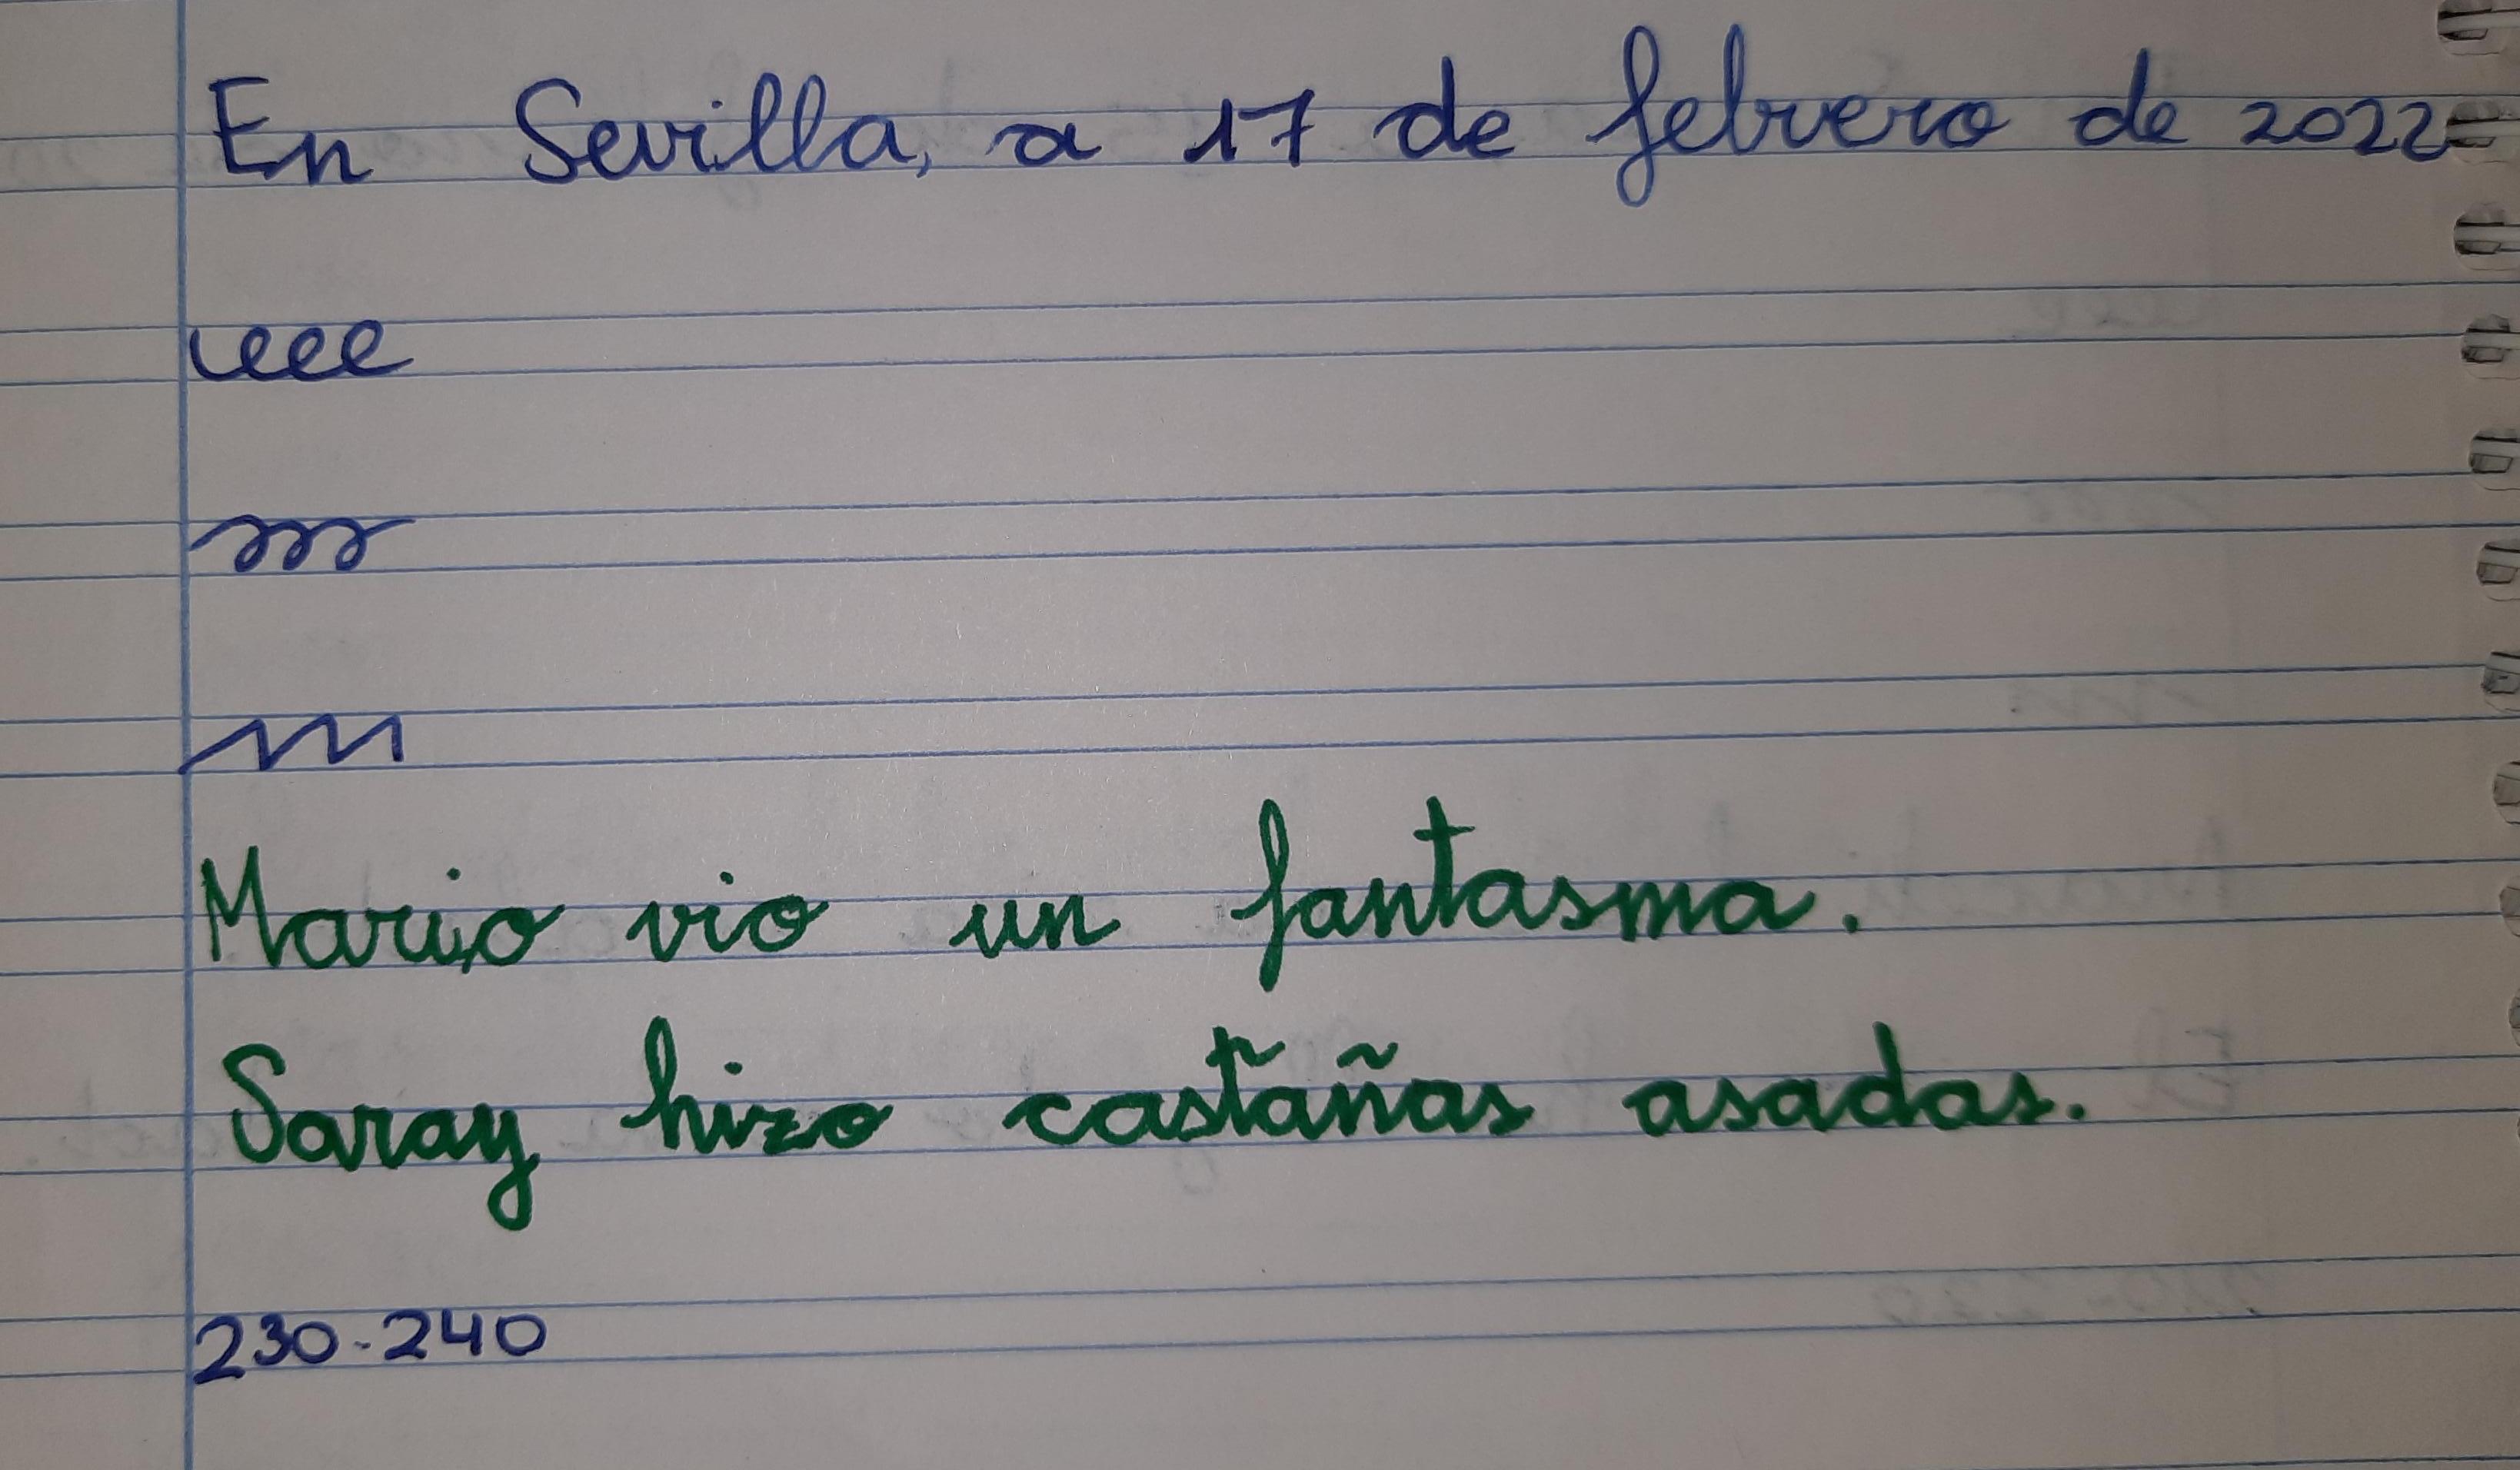 En Sevilla, a 17 de febrero de 2022
eee
Mario vio un fantasma.
Saray hizo castañas asadas.
230-240